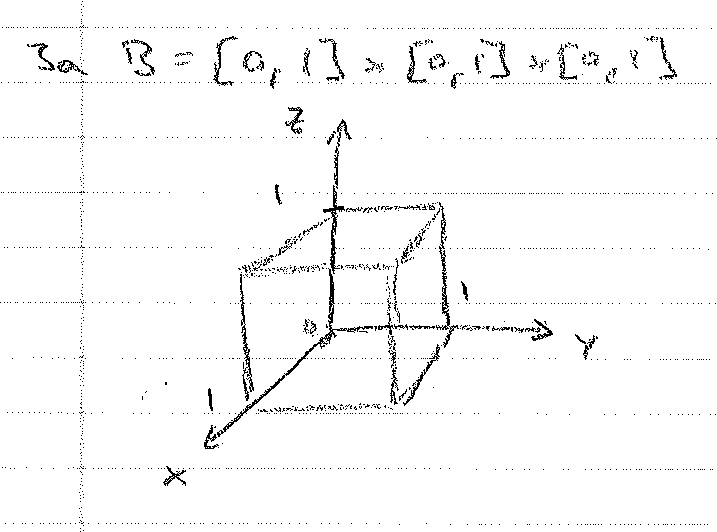 3a B = [0, 1] × [0, 1] × [0, 1]
Z
1
1
0
Y
1
X